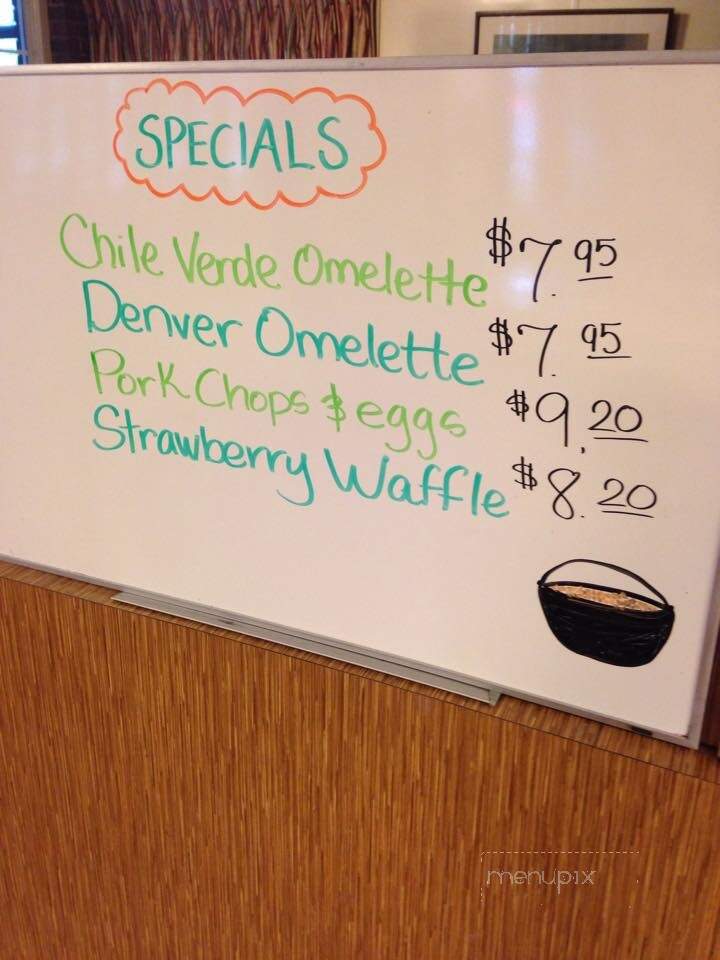 SPECIALS
Chile Verde Omelette $7.95
Denver Omelette $7.95
Pork Chops & eggs $9.20
Strawberry Waffle $8.20
menupix